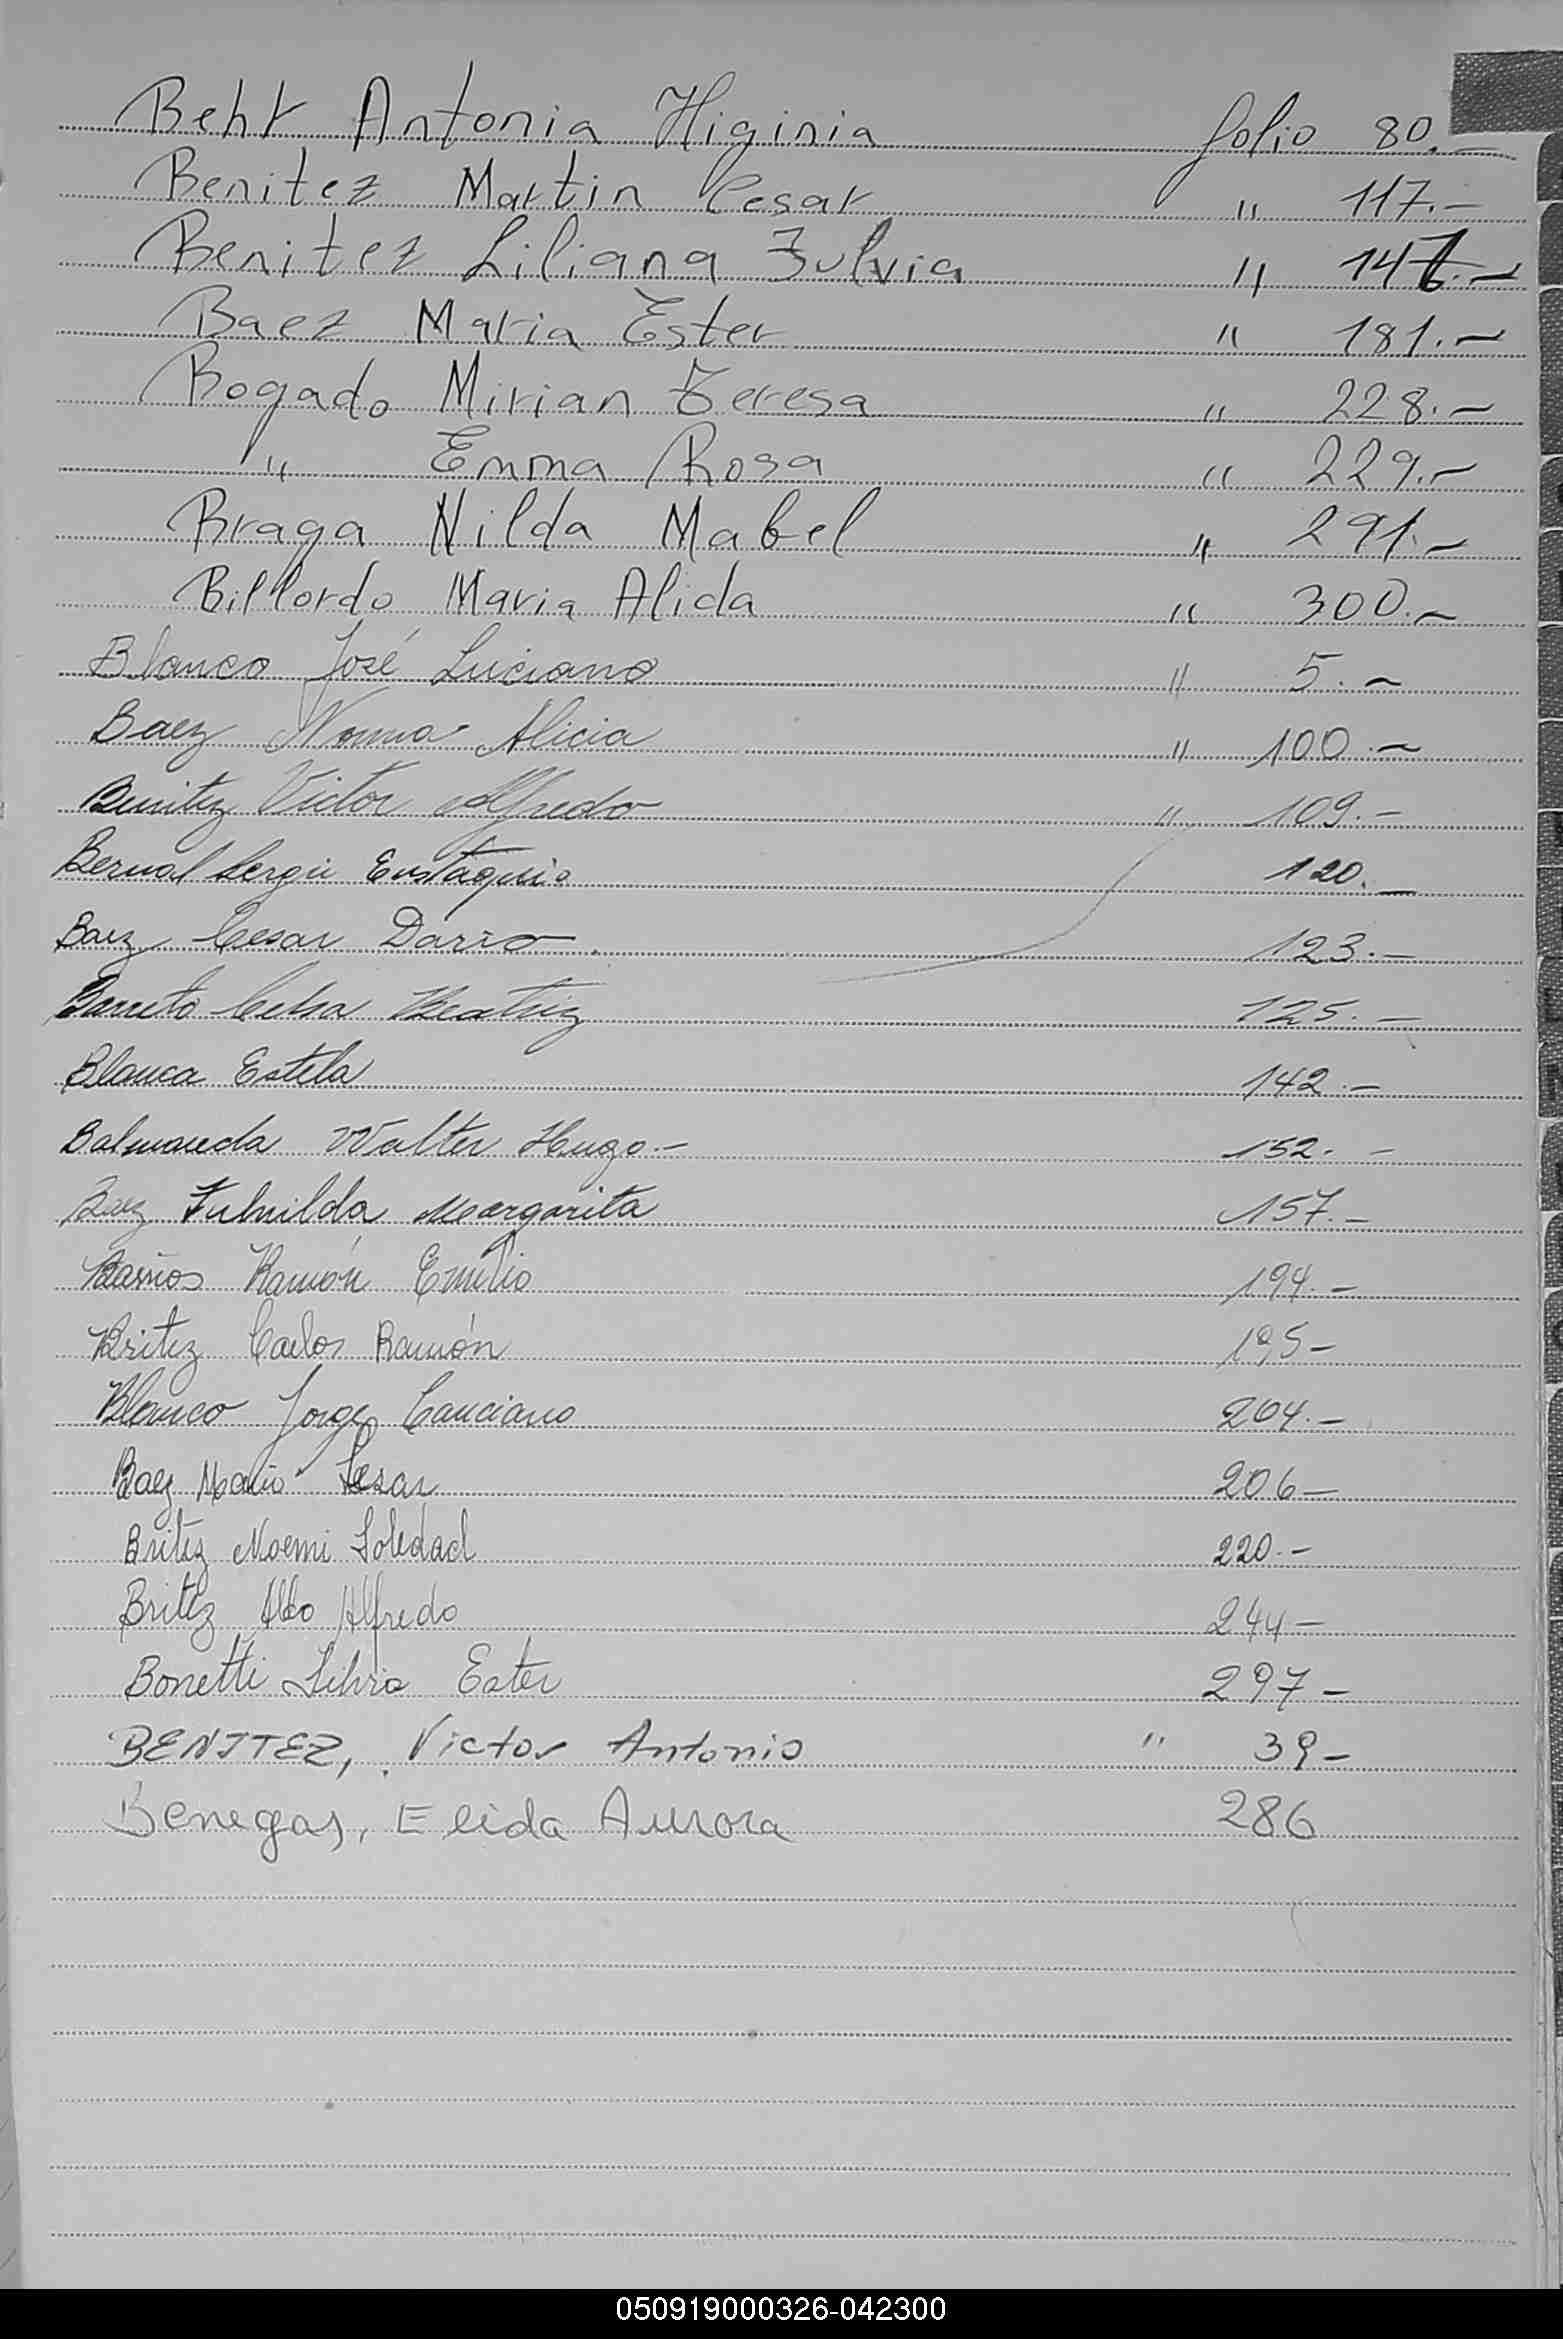 Beht Antonia Higinia folio 80.-
Benitez Martin Cesar " 117.-
Benitez Liliana Fulvia " 147.-
Baez Maria Ester " 181.-
Bogado Mirian Teresa " 228.-
" Emma Rosa " 229.-
Braga Nilda Mabel " 291.-
Billordo Maria Alida " 300.-
Blanco José Luciano " 5.-
Baez Norma Alicia " 100.-
Benitez Victor Alfredo " 109.-
Bernal Sergio Eustaquio 120.-
Baez Cesar Dario. 123.-
Barreto Celsa Beatriz 125.-
Blanca Estela 142.-
Balmaceda Walter Hugo.- 152.-
Baez Margarita 157.-
Barrios Ramón Emilio 194.-
Britez Carlos Ramón 195-
Blanco Jorge Canciano 204.-
Baez Mario Cesar 206-
Britez Noemi Soledad 220.-
Britez Aldo Alfredo 244-
Bonetti Silvia Ester 297-
BENITEZ, Victor Antonio " 39-
Benegas, Elida Aurora 286
050919000326-042300